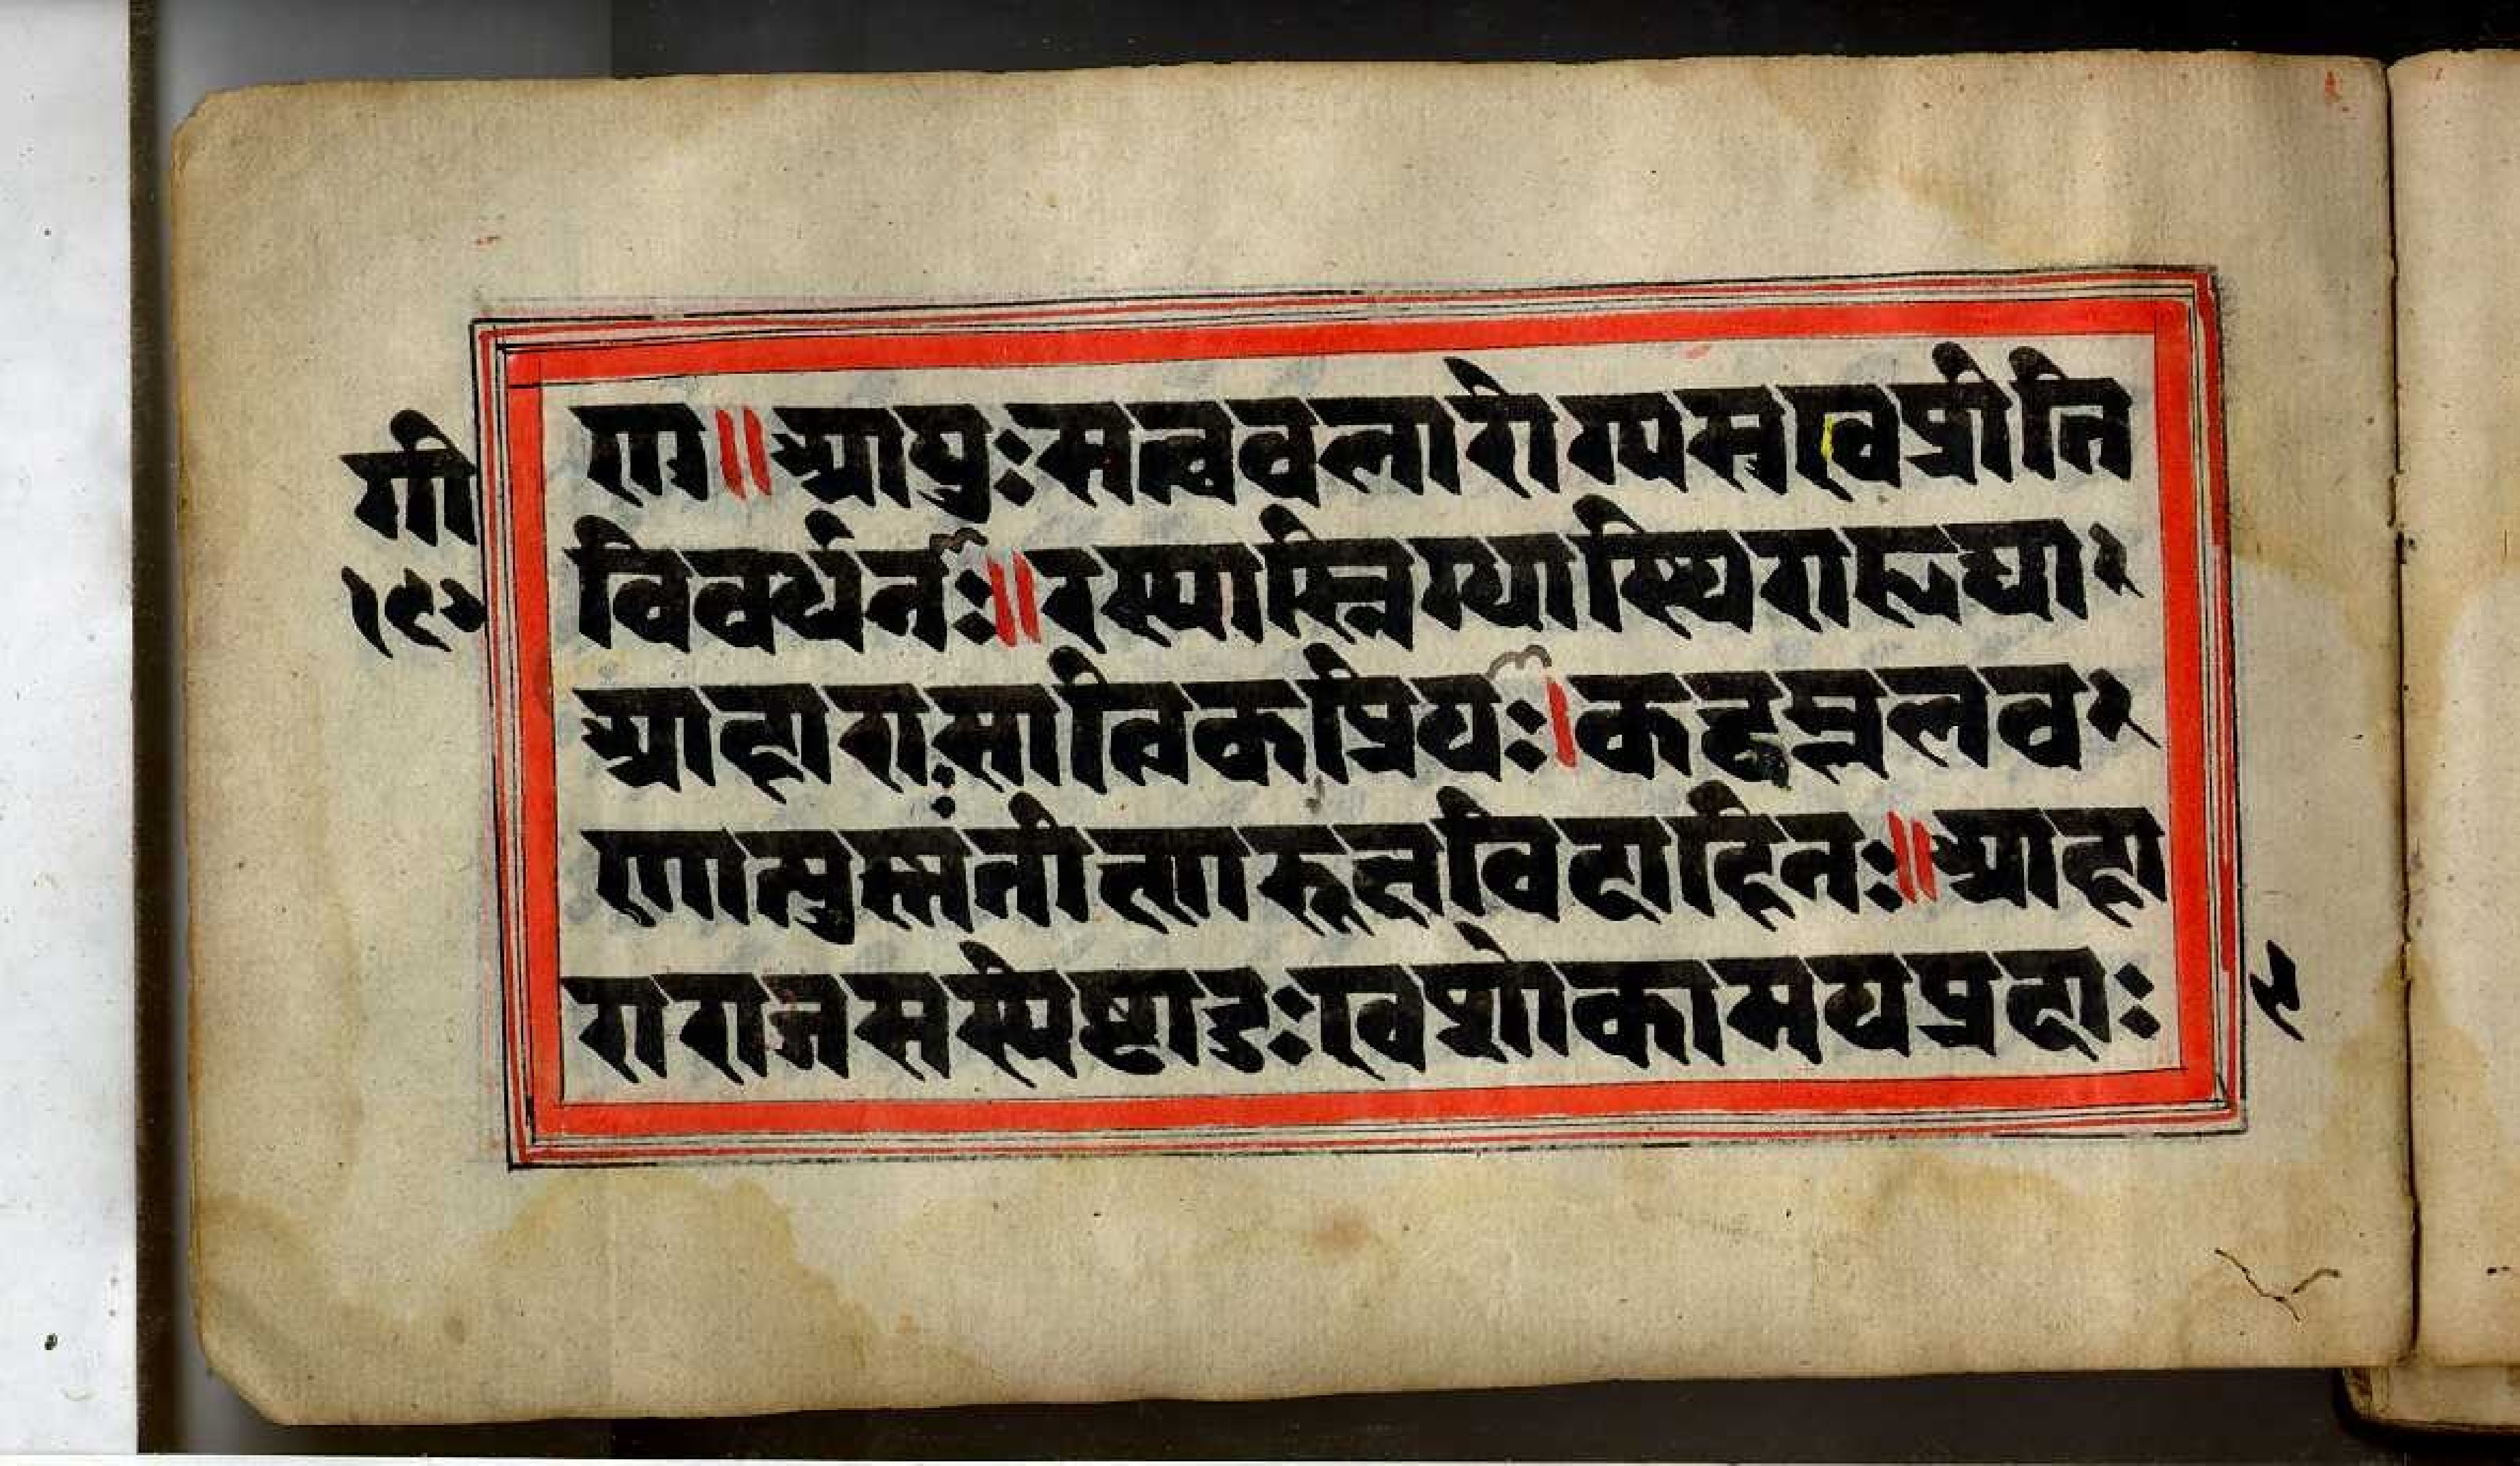 गी
१९०
णु॥आयुःसत्ववलारोग्यसुखप्रीति
विवर्धनः॥रस्यास्निग्धास्थिराहृद्या
आहाराःसात्विकप्रियः।कट्वम्ललव
णात्युस्नतीक्ष्णरूक्षविदाहिनः॥आहा
राराजसस्येष्टादुःखशोकामयप्रदाः